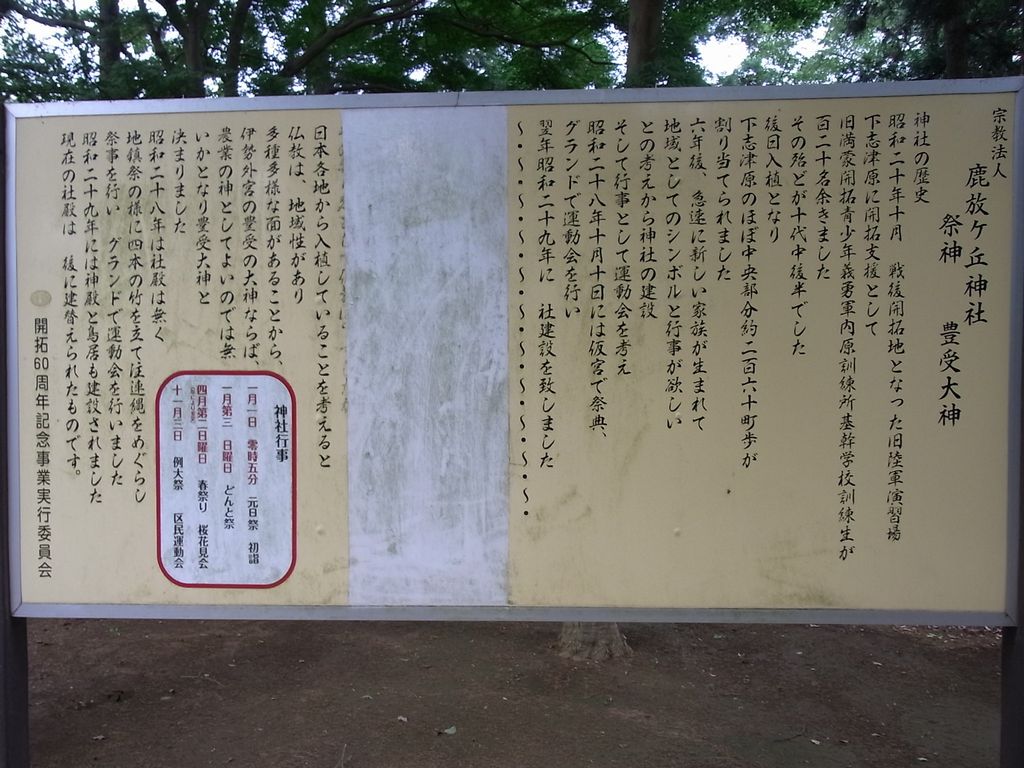 宗教法人
鹿放ケ丘神社
祭神 豊受大神
神社の歴史
昭和二十年十月 戦後開拓地となった旧陸軍演習場
下志津原に開拓支援として
旧満蒙開拓青少年義勇軍内原訓練所基幹学校訓練生が
百二十名余きました
その殆どが十代中後半でした
後回入植となり
下志津原のほぼ中央部分約二百六十町歩が
割り当てられました
六年後、急速に新しい家族が生まれて
地域としてのシンボルと行事が欲しい
との考えから神社の建設
そして行事として運動会を考え
昭和二十八年十月十日には仮宮で祭典、
グランドで運動会を行い
翌年昭和二十九年に 社建設を致しました
～・～・～・～・～・～・～・～・～・
日本各地から入植していることを考えると
仏教は、地域性があり
多種多様な面があることから、
伊勢外宮の豊受の大神ならば、
農業の神としてよいのでは無
いかとなり豊受大神と
決まりました
昭和二十八年は社殿は無く
地鎮祭の様に四本の竹を立て注連縄をめぐらし
祭事を行い グランドで運動会を行いました
昭和二十九年には神殿と鳥居も建設されました
現在の社殿は 後に建替えられたものです。
開拓60周年記念事業実行委員会
神社行事
一月一日 零時五分 元日祭 初詣
一月第三 日曜日 どんと祭
四月第二日曜日 春祭り 桜花見会
十一月三日 例大祭 区民運動会